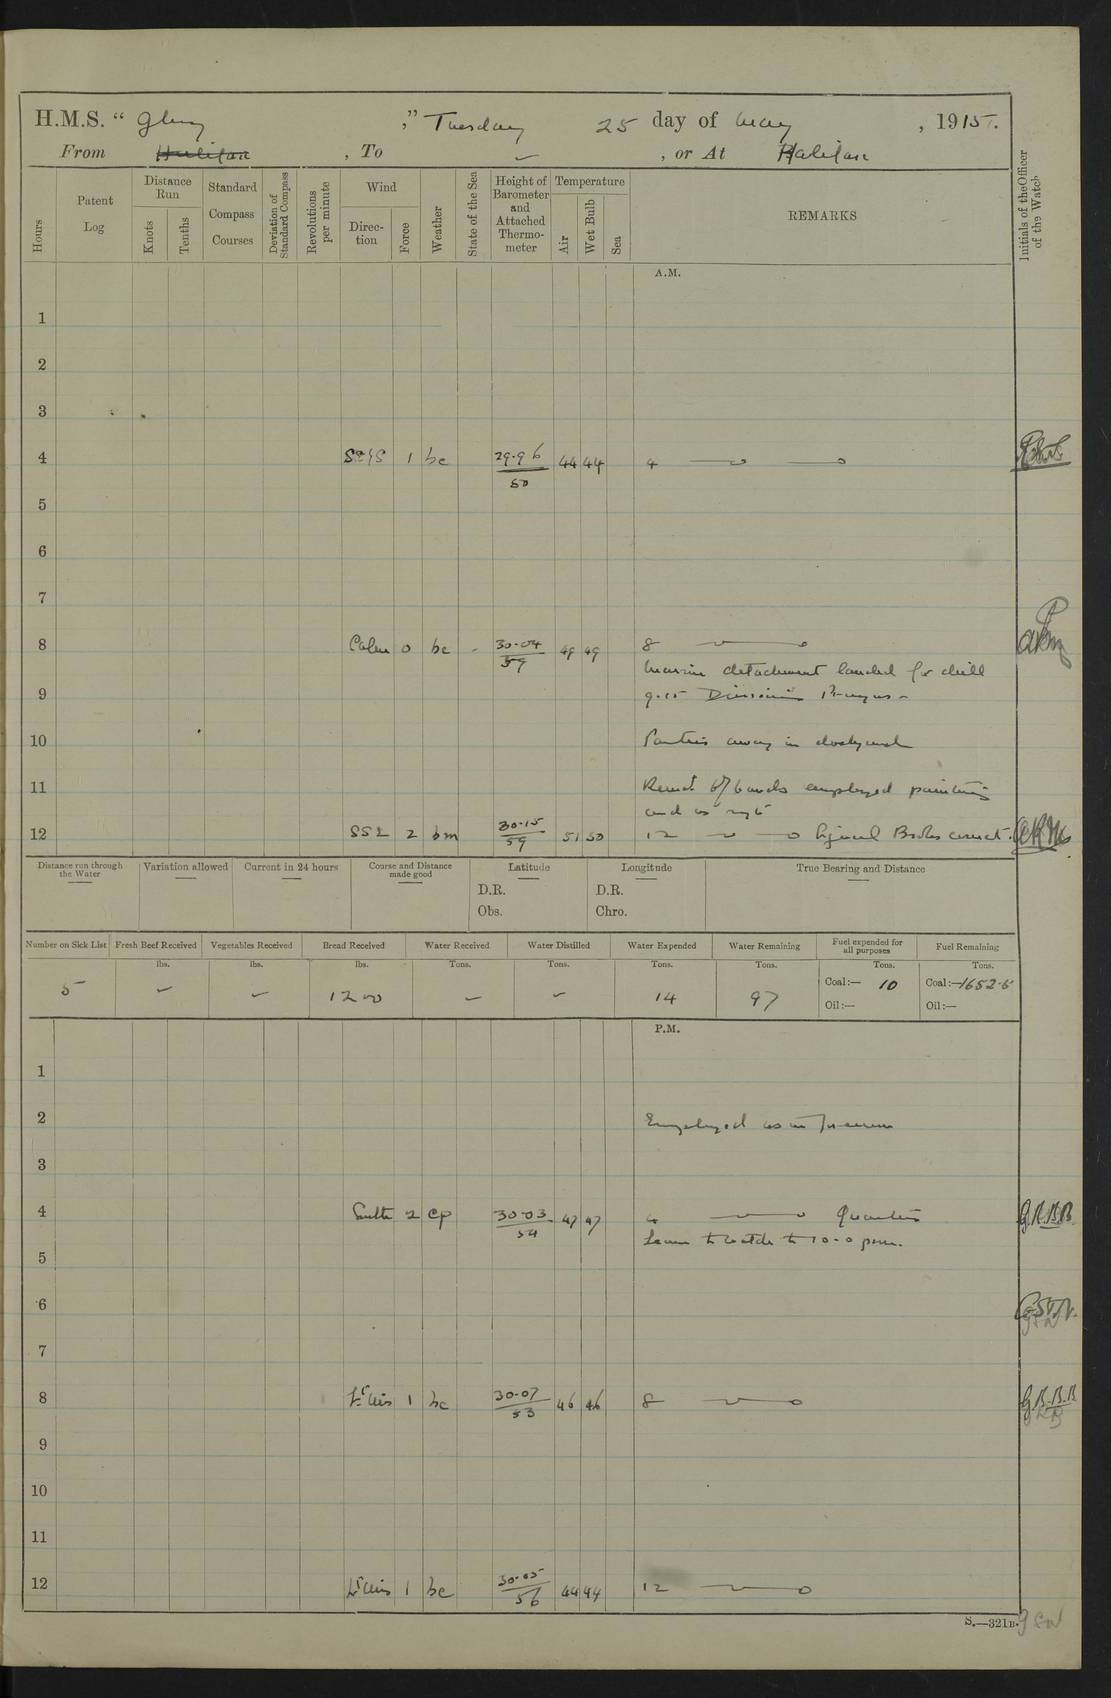 H.M.S. “ Glory ,” Tuesday 25 day of May , 1915.
From Halifax , To , or At Halifax
Hours
Patent Log
Distance Run
Knots
Tenths
Standard Compass Courses
Deviation of Standard Compass
Revolutions per minute
Wind
Direction
Force
Weather
State of the Sea
Height of Barometer and Attached Thermometer
Temperature
Air
Wet Bulb
Sea
REMARKS
Initials of the Officer of the Watch
A.M.
1
2
3
4 1 bc 29·96 50 44 44 4
5
6
7
8 Calm 0 bc - 30·04 59 49 49 8
Marine detachment landed for drill
9 9.15 Divisions Prayers
10 Parties away in dockyard
11 Remdr of hands employed painting
and as reqd
12 2 bm 30·15 59 51 50 12 Signal Books correct.
Distance run through the Water
Variation allowed
Current in 24 hours
Course and Distance made good
Latitude
D.R.
Obs.
Longitude
D.R.
Chro.
True Bearing and Distance
Number on Sick List
Fresh Beef Received
Vegetables Received
Bread Received
Water Received
Water Distilled
Water Expended
Water Remaining
Fuel expended for all purposes
Fuel Remaining
lbs. lbs. lbs. Tons. Tons. Tons. Tons. Tons. Tons.
5 1200 14 97 Coal:— 10 Coal:— 1652·6
Oil:— Oil:—
P.M.
1
2 Employed as in forenoon
3
4 South 2 cp 30·03 54 47 47 4 Quarters G.R.B.B.
Leave to watch to 10·0 p.m.
5
6
7
8 Lt Airs 1 bc 30·07 53 46 46 8 G.R.B.B
9
10
11
12 Lt Airs 1 bc 30·05 56 44 44 12
S.—321B.